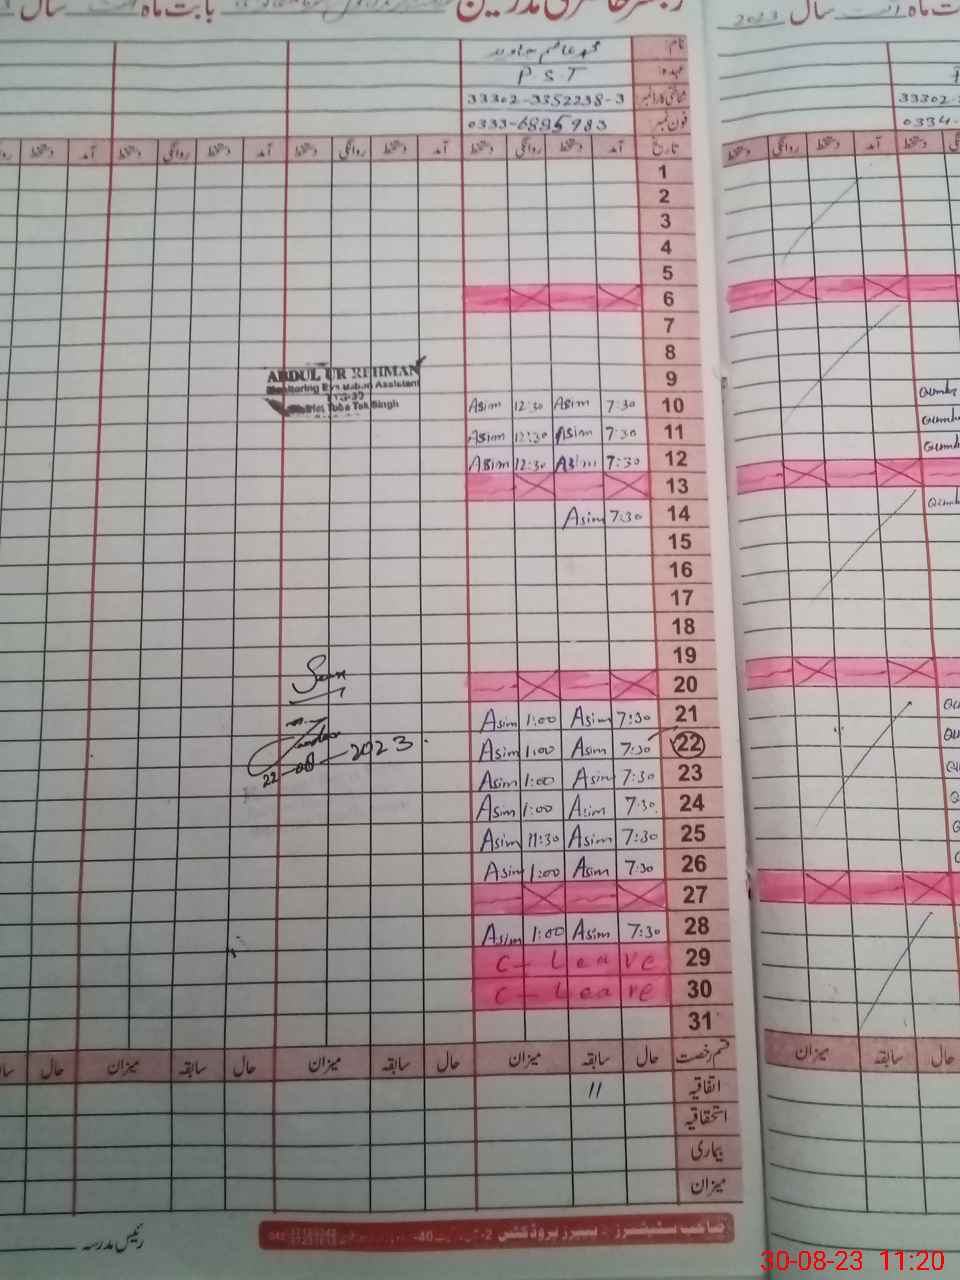 رجسٹر حاضری مدرسین
بابت ماہ اگست سال
ماہ اگست سال 2023
نام: محمد عاصم جاوید
عہدہ: P S T
شناختی کارڈ نمبر 33302-3352238-3
33302-
فون نمبر 0333-6895983
0334-
تاریخ آمد دستخط روانگی دستخط آمد دستخط روانگی دستخط آمد دستخط روانگی دستخط
آمد دستخط روانگی دستخط
1
2
3
4
5
6
7
8
9
ABDUL UR REHMAN
Monitoring Evaluation Assistant
District Toba Tek Singh
10 7:30 Asim 12:30 Asim
11 7:30 Asim 12:30 Asim
12 7:30 Asim 12:30 Asim
13
14 7:30 Asim
15
16
17
18
19
20
21 7:30 Asim 1:00 Asim
22 7:30 Asim 1:00 Asim
22-08-2023
23 7:30 Asim 1:00 Asim
24 7:30 Asim 1:00 Asim
25 7:30 Asim 11:30 Asim
26 7:30 Asim 1:00 Asim
27
28 7:30 Asim 1:00 Asim
29 C-Leave
30 C-Leave
31
قسم رخصت حال سابقہ میزان حال سابقہ میزان حال سابقہ میزان حال
حال سابقہ میزان
اتفاقیہ 11
استحقاقیہ
بیماری
میزان
رئیس مدرسہ
صاحب سٹیشنرز پیپرز پروڈکشن
30-08-23 11:20